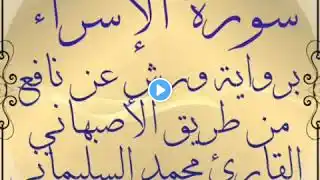 سورة الإسراء
برواية ورش عن نافع
من طريق الأصبهاني
القارئ محمد السليماني